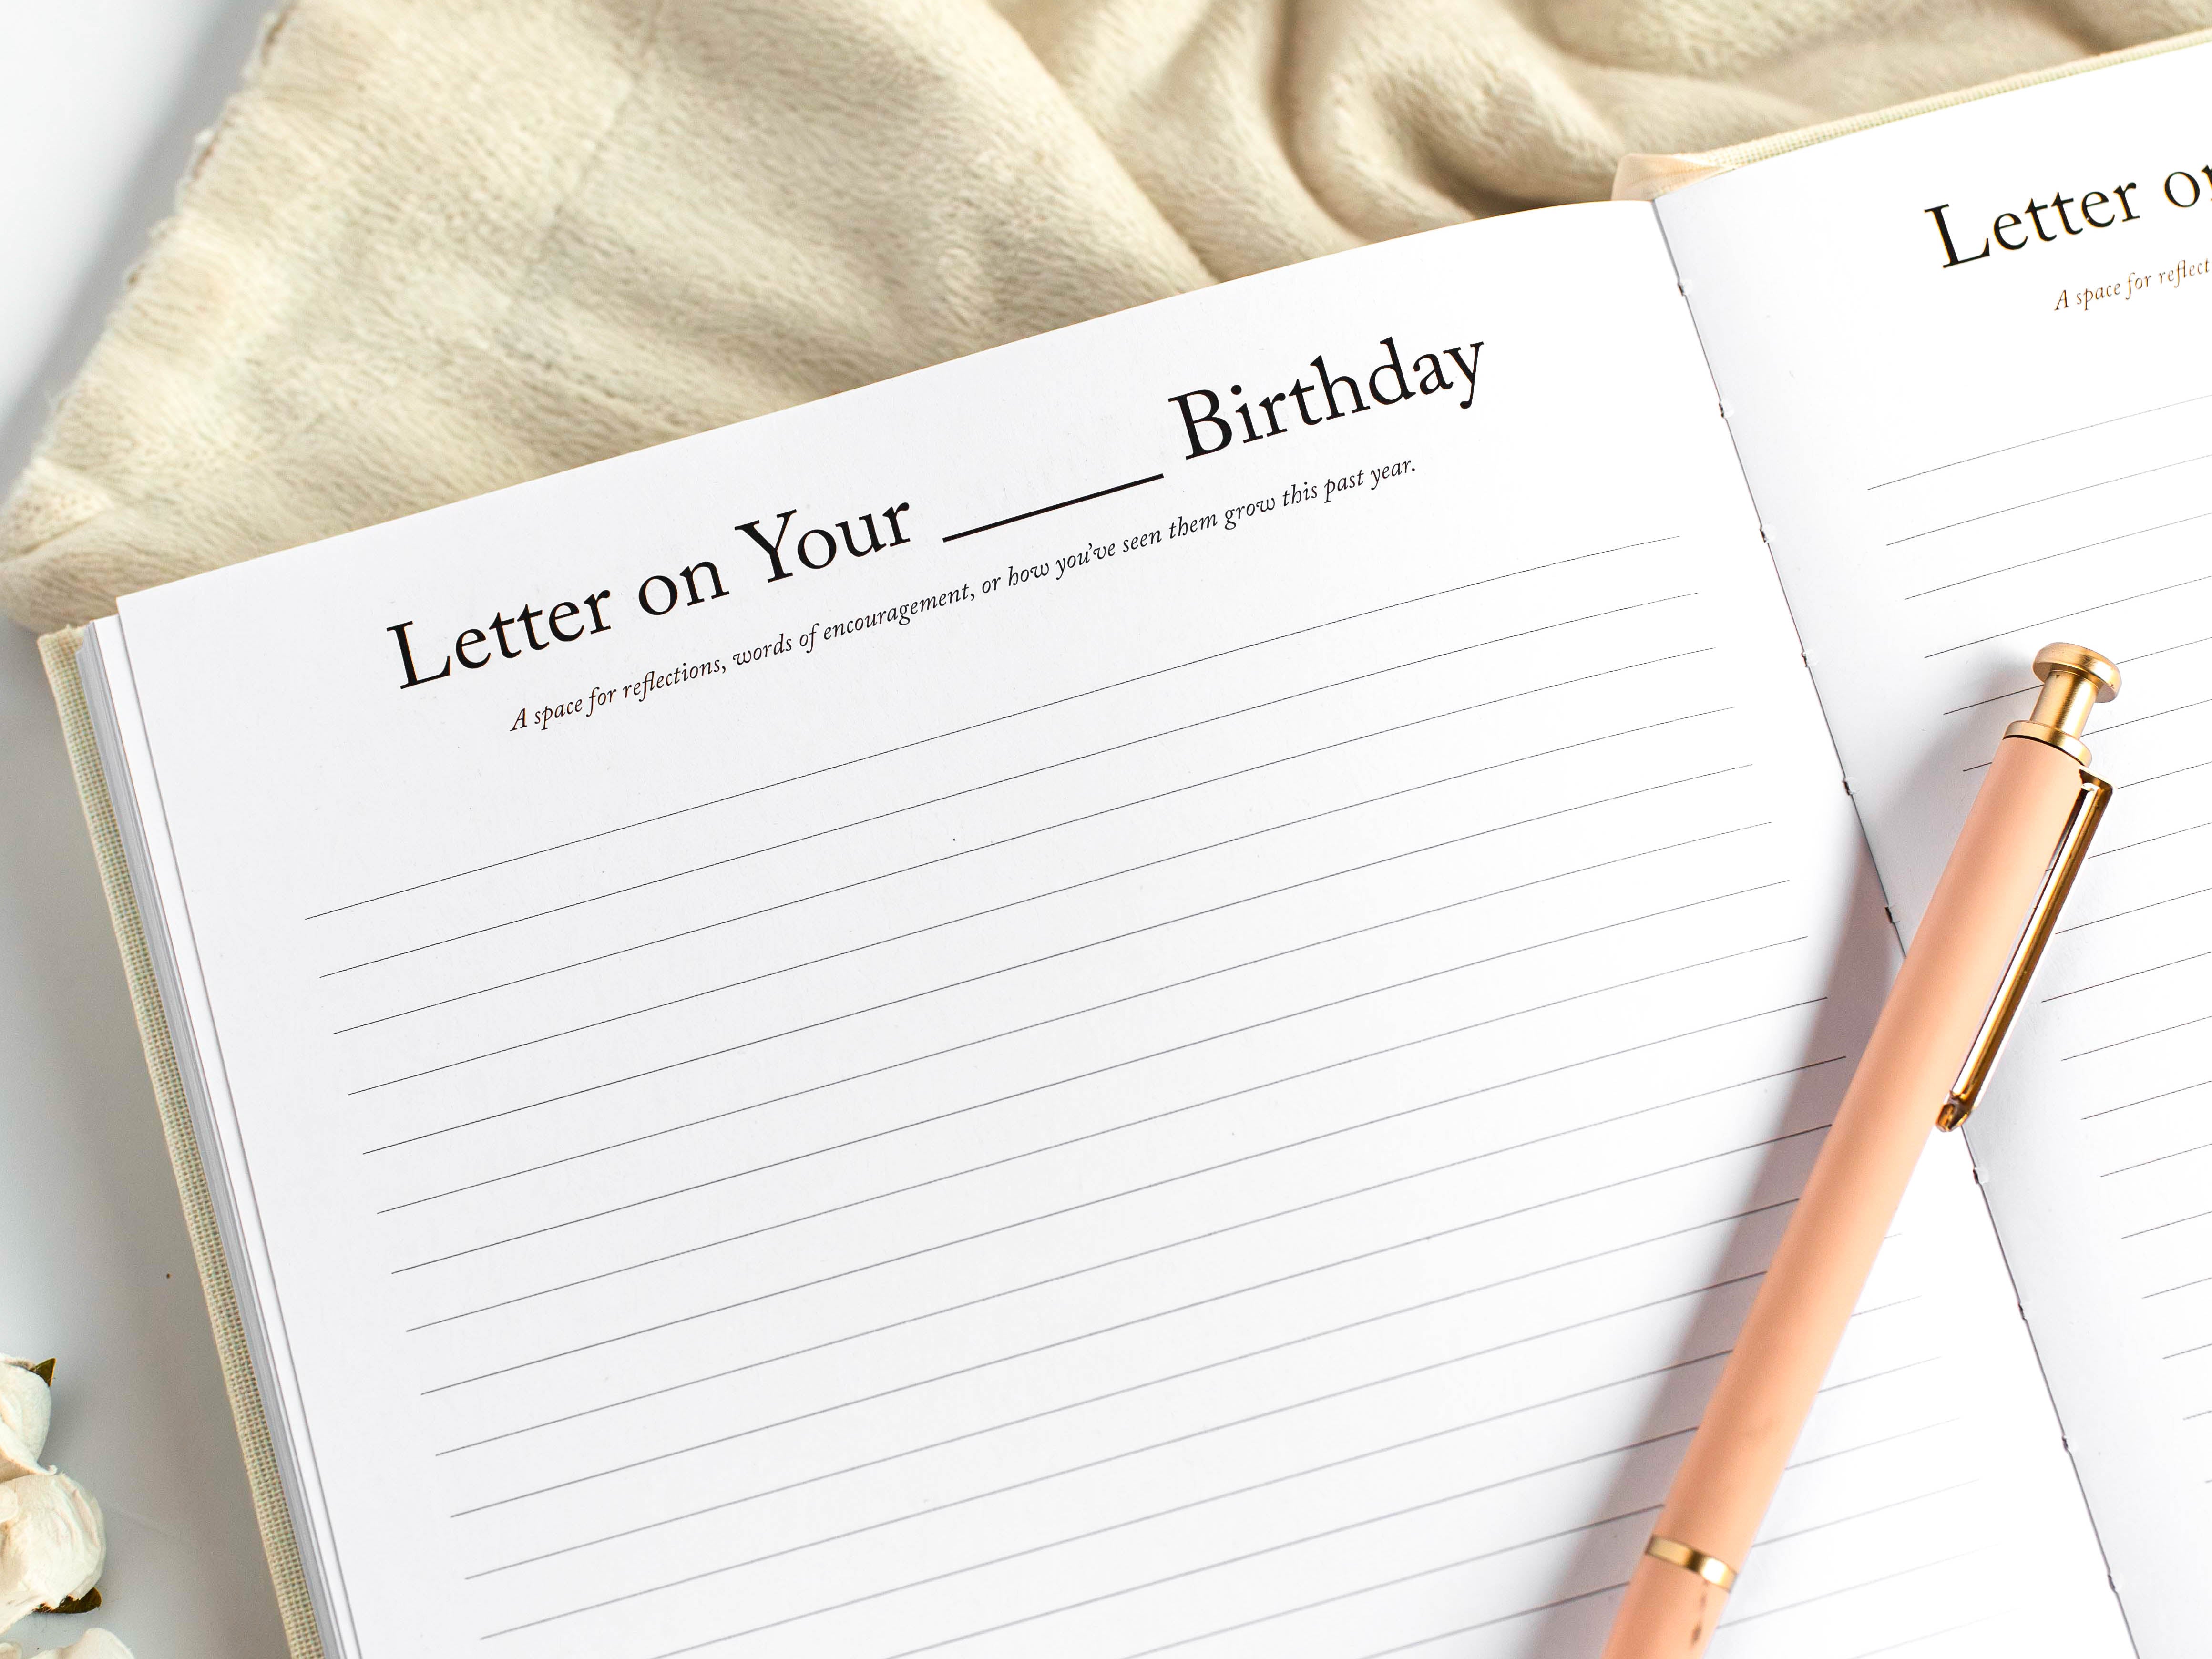 Letter on Your _____ Birthday
A space for reflections, words of encouragement, or how you've seen them grow this past year.
Letter
A space for